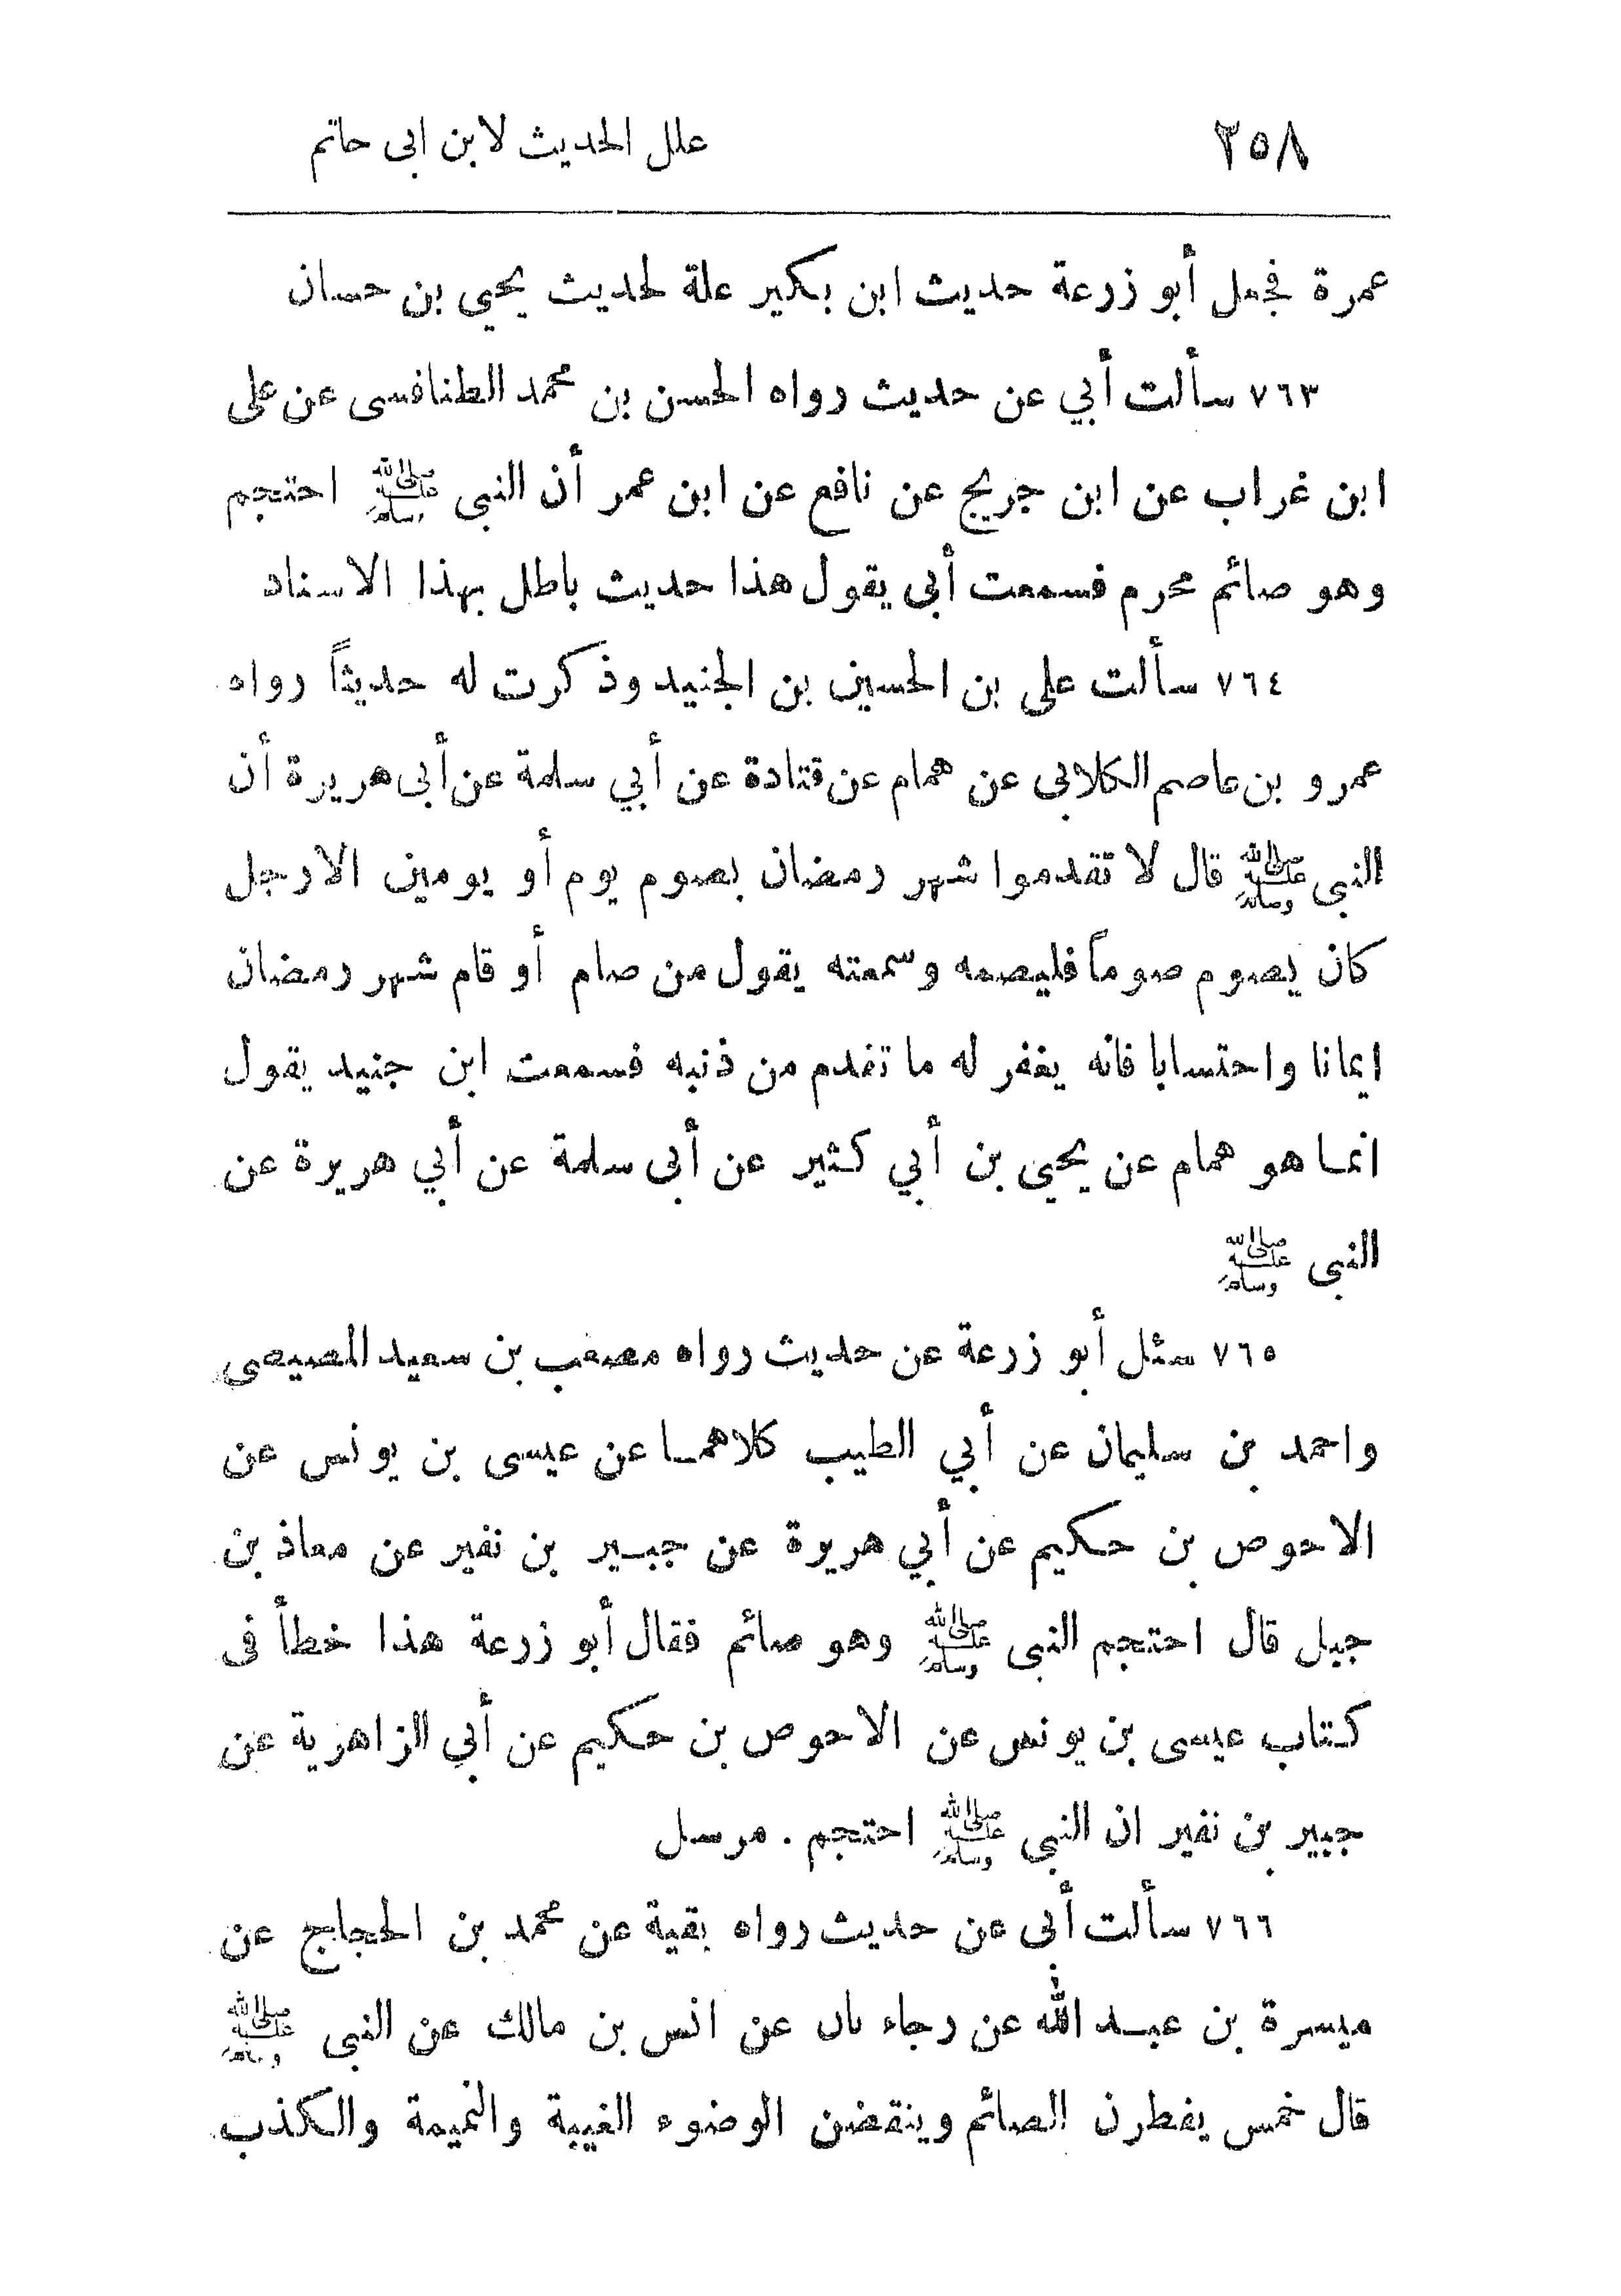 ٢٥٨ علل الحديث لابن ابى حاتم
عمرة فجعل أبو زرعة حديث ابن بكير علة لحديث يحيى بن حسان
٧٦٣ سألت أبي عن حديث رواه الحسن بن محمد الطنافسى عن على
ابن غراب عن ابن جريج عن نافع عن ابن عمر أن النبى ﷺ احتجم
وهو صائم محرم فسمعت أبى يقول هذا حديث باطل بهذا الاسناد
٧٦٤ سألت على بن الحسين بن الجنيد وذكرت له حديثاً رواه
عمرو بن عاصم الكلابى عن همام عن قتادة عن أبي سلمة عن أبى هريرة أن
النبى ﷺ قال لا تقدموا شهر رمضان بصوم يوم أو يومين الا رجل
كان يصوم صوماً فليصمه وسمعته يقول من صام أو قام شهر رمضان
ايمانا واحتسابا فانه يغفر له ما تقدم من ذنبه فسمعت ابن جنيد يقول
انما هو همام عن يحيى بن أبي كثير عن أبى سلمة عن أبي هريرة عن
النبى ﷺ
٧٦٥ سئل أبو زرعة عن حديث رواه مصعب بن سعيد المصيصى
واحمد بن سليمان عن أبي الطيب كلاهما عن عيسى بن يونس عن
الاحوص بن حكيم عن أبي هريرة عن جبير بن نفير عن معاذ بن
جبل قال احتجم النبى ﷺ وهو صائم فقال أبو زرعة هذا خطأ فى
كتاب عيسى بن يونس عن الاحوص بن حكيم عن أبي الزاهرية عن
جبير بن نفير ان النبى ﷺ احتجم . مرسل
٧٦٦ سألت أبى عن حديث رواه بقية عن محمد بن الحجاج عن
ميسرة بن عبد الله عن رجاء عن انس بن مالك عن النبى ﷺ
قال خمس يفطرن الصائم وينقضن الوضوء الغيبة والنميمة والكذب